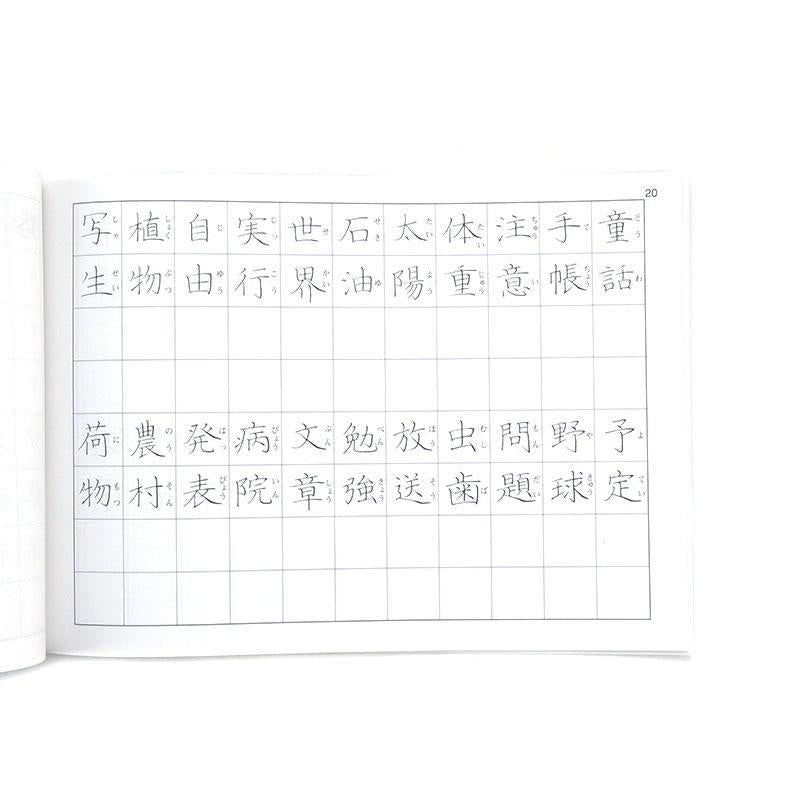 20
童話 どうわ
手帳 てちょう
注意 ちゅうい
体重 たいじゅう
太陽 たいよう
石油 せきゆ
世界 せかい
実行 じっこう
自由 じゆう
植物 しょくぶつ
写生 しゃせい
予定 よてい
野球 やきゅう
問題 もんだい
虫歯 むしば
放送 ほうそう
勉強 べんきょう
文章 ぶんしょう
病院 びょういん
発表 はっぴょう
農村 のうそん
荷物 にもつ